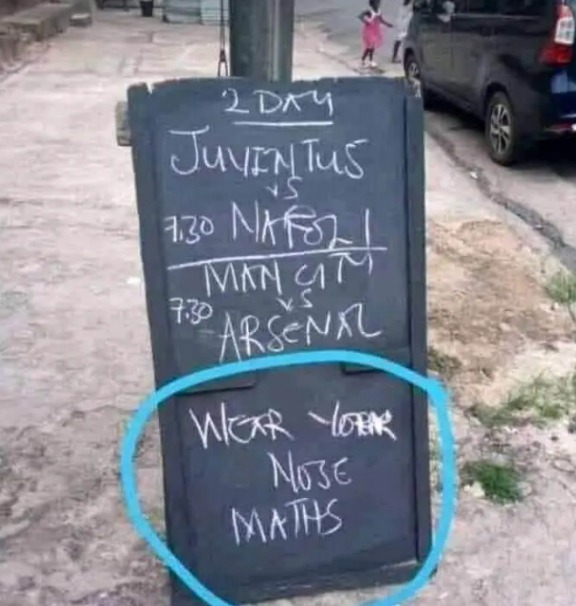 2 DAY
JUVENTUS
VS
7.30 NAPOLI
MAN CITY
VS
7.30 ARSENAL
WEAR
NOSE
MATHS